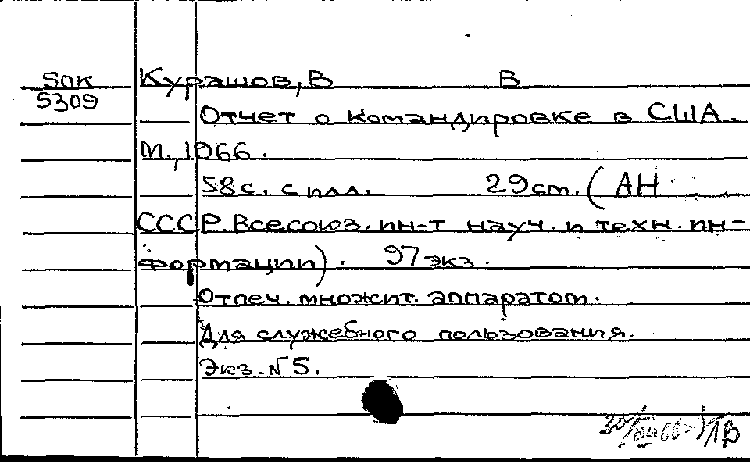 Курашов, В В
Отчет о командировке в США.
М., 1966.
58с. с илл. 29 cm. (АН
СССР. Всесоюз. ин-т науч. и техн. ин-
формации). 97 экз.
Отпеч. множит. аппаратом.
Для служебного пользования.
Экз. № 5.
5309